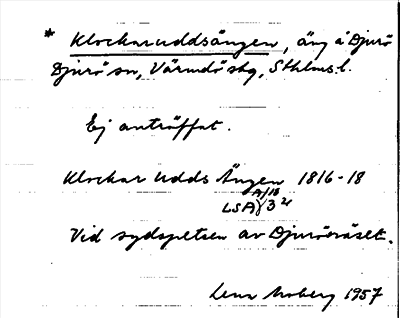 * Klockaruddsängen, äng å Djurö
Djurö sn, Värmdö skg, Sthlms l.
Ej anträffat.
Klockar udds Ängen 1816-18
LSA
Vid sydspetsen av Djurönäset.
Lena Moberg 1957